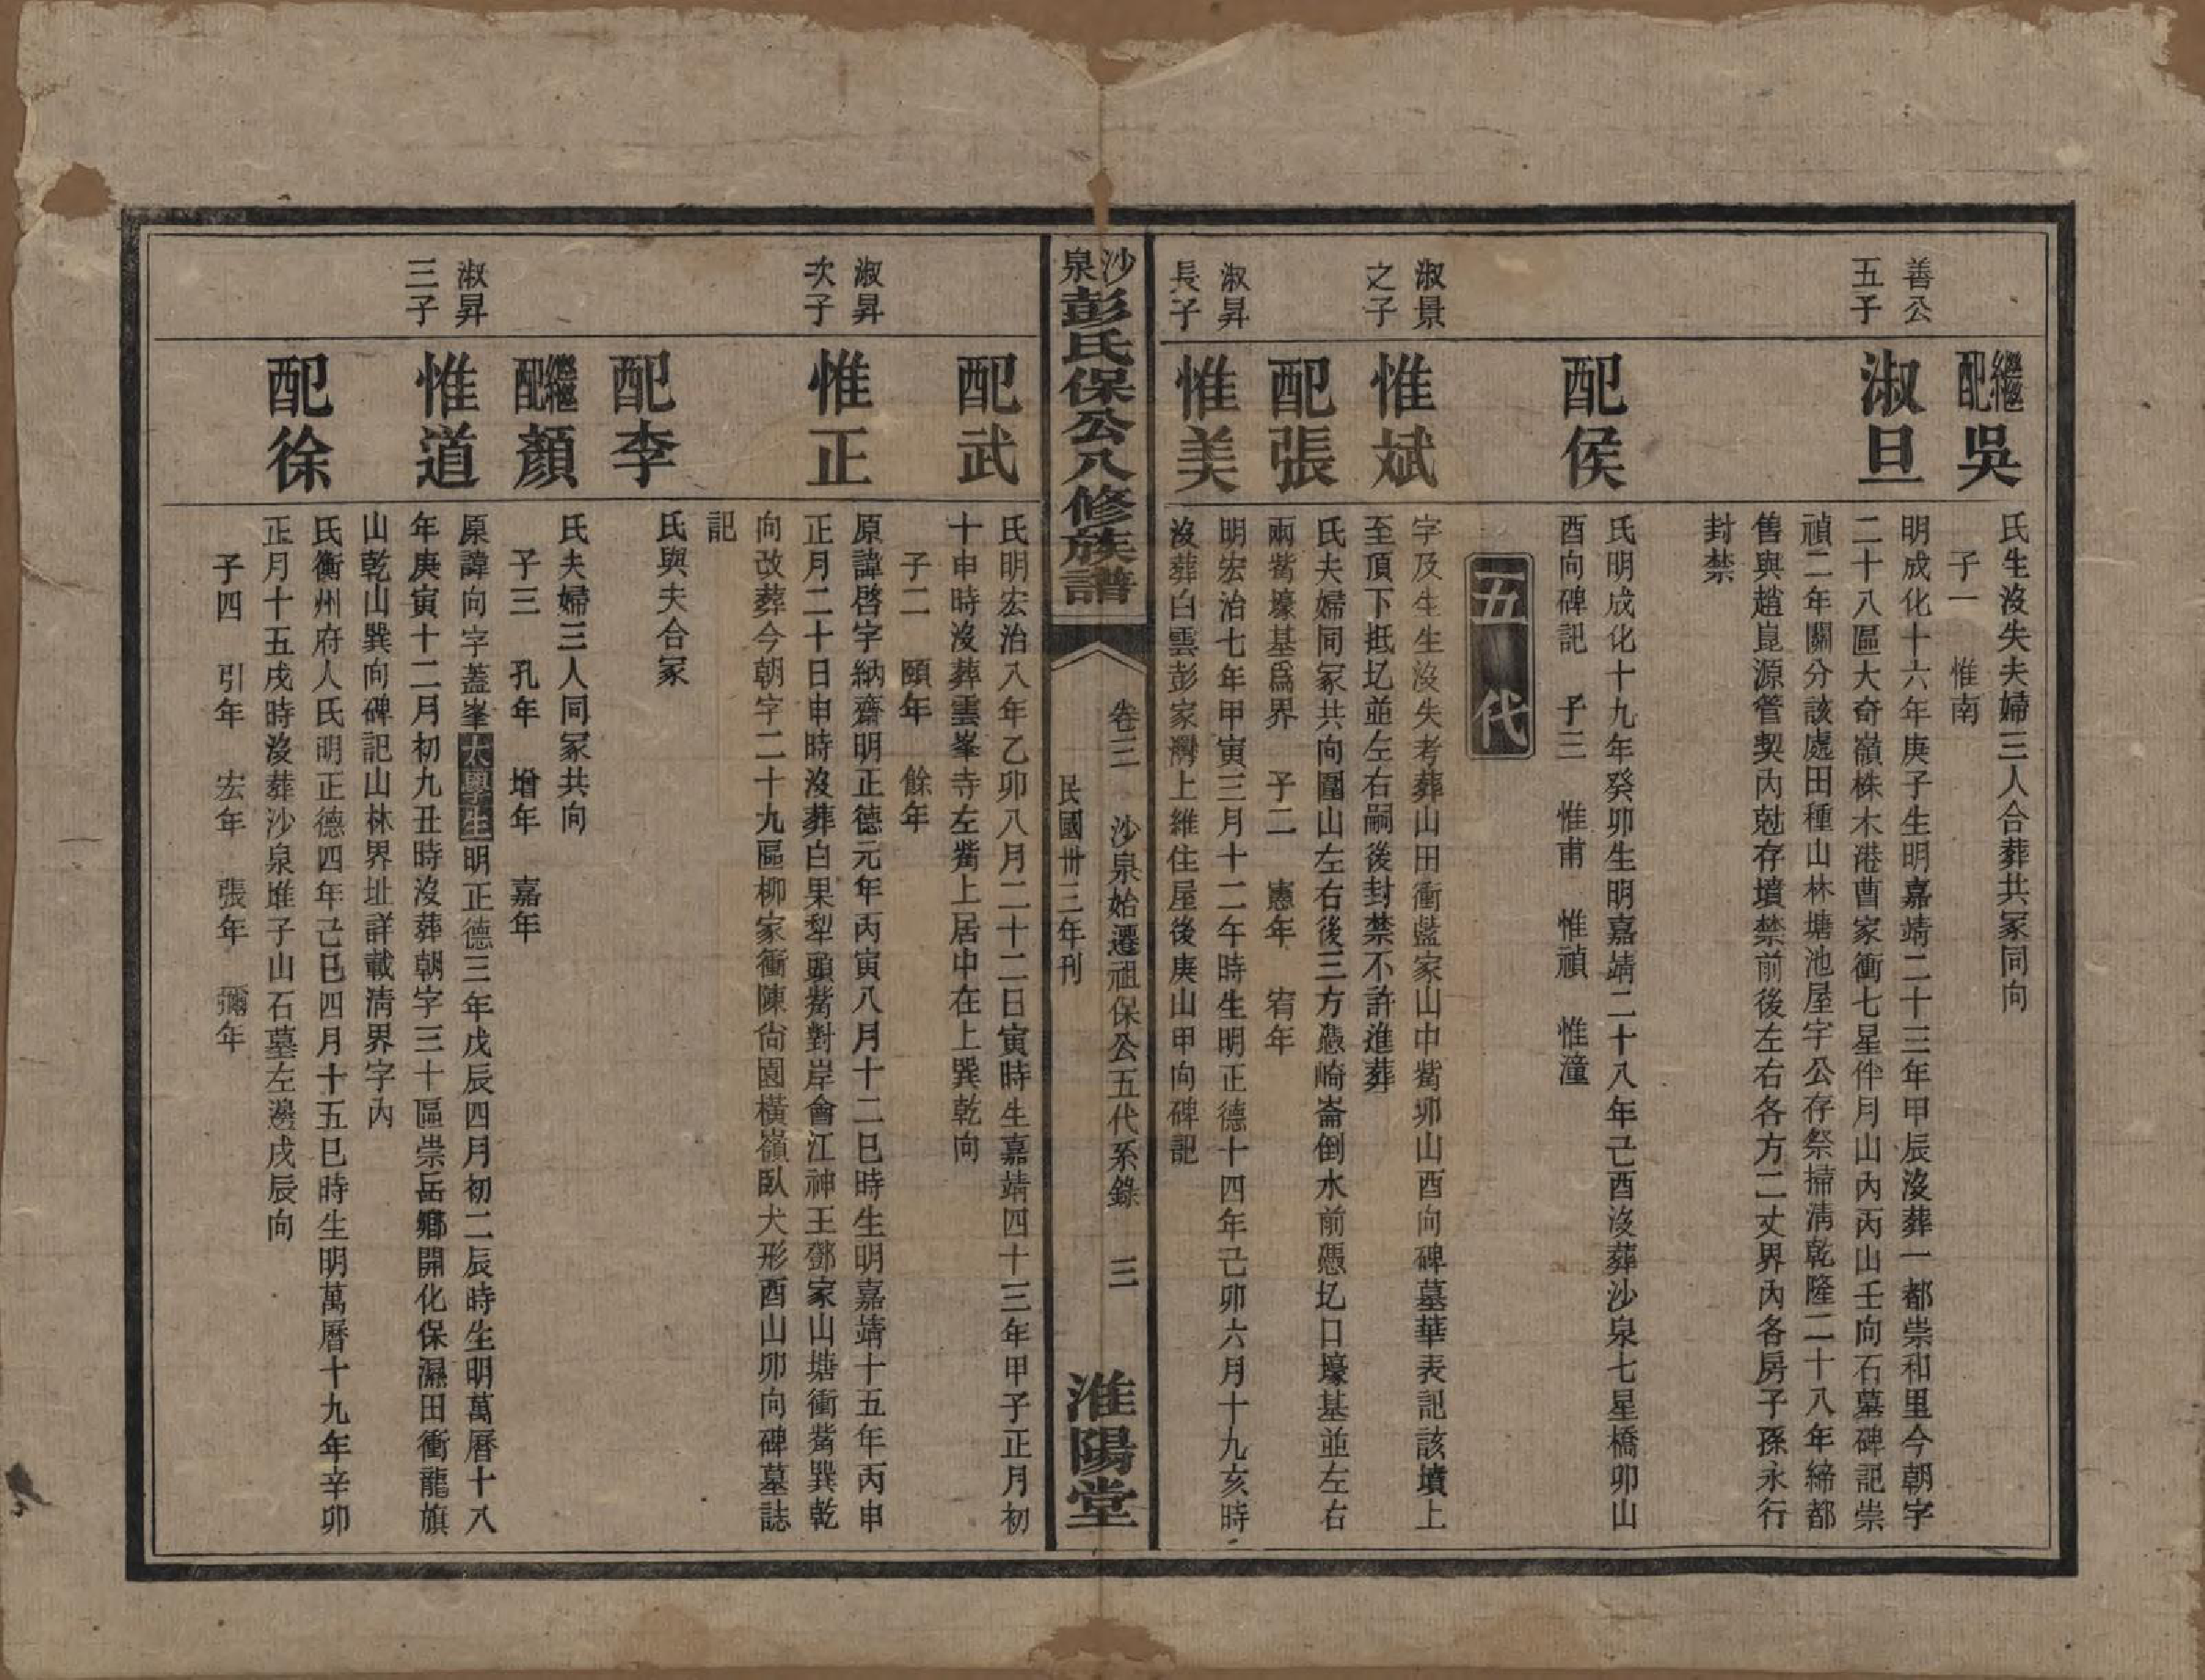 繼配吳
氏生沒失夫婦三人合葬共冢同向
子一　惟南
善公五子
淑旦
明成化十六年庚子生明嘉靖二十三年甲辰沒葬一都崇和里今朝字
二十八區大奇嶺株木港曹家衝七星伴月山內丙山壬向石墓碑記崇
禎二年鬮分該處田種山林塘池屋宇公存祭掃清乾隆二十八年締都
售與趙崑源管契內尅存墳禁前後左右各方二丈界內各房子孫永行
封禁
配侯
氏明成化十九年癸卯生明嘉靖二十八年己酉沒葬沙泉七星橋卯山
酉向碑記　子三　惟甫　惟禎　惟潼
五代
淑景之子
惟斌
字及生生沒失考葬山田衝藍家山中嘴卯山酉向碑墓華表記該墳上
至頂下抵圪並左右嗣後封禁不許進葬
配張
氏夫婦同冢共向圍山左右後三方憑崎崙倒水前憑圪口壕基並左右
兩嘴壕基爲界　子二　憲年　宥年
淑昇長子
惟美
明宏治七年甲寅三月十二午時生明正德十四年己卯六月十九亥時
沒葬白雲彭家灣上維住屋後庚山甲向碑記
沙泉彭氏保公八修族譜
卷三　沙泉始遷祖保公五代系錄　三
民國卅三年刊
淮陽堂
配武
氏明宏治八年乙卯八月二十二日寅時生嘉靖四十三年甲子正月初
十申時沒葬雲峯寺左嘴上居中在上巽乾向
子二　頤年　餘年
淑昇次子
惟正
原諱啓字納齋明正德元年丙寅八月十二巳時生明嘉靖十五年丙申
正月二十日申時沒葬白果犁頭嘴對岸會江神王鄧家山塘衝嘴巽乾
向改葬今朝字二十九區柳家衝陳尙園橫嶺臥犬形酉山卯向碑墓誌
記
配李
氏與夫合冢
繼配顏
氏夫婦三人同冢共向
子三　孔年　增年　嘉年
淑昇三子
惟道
原諱向字蓋峯太學生明正德三年戊辰四月初二辰時生明萬曆十八
年庚寅十二月初九丑時沒葬朝字三十區崇岳鄉開化保濕田衝龍旗
山乾山巽向碑記山林界址詳載清界字內
配徐
氏衡州府人氏明正德四年己巳四月十五巳時生明萬曆十九年辛卯
正月十五戌時沒葬沙泉堆子山石墓左邊戌辰向
子四　引年　宏年　張年　彌年